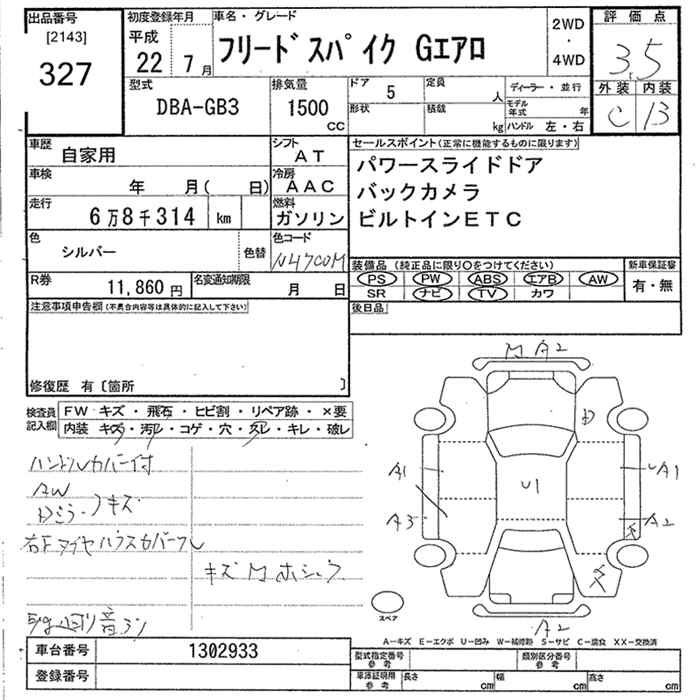 出品番号
[2143]
327
初度登録年月
平成
22 7月
車名・グレード
フリードスパイク Gエアロ
2WD
・
4WD
評価点
3.5
外装 内装
C B
型式
DBA-GB3
排気量
1500
CC
ドア 5
定員 人
形状
積載 kg
ディーラー・並行
モデル年式 年
ハンドル 左・右
車歴
自家用
シフト
AT
車検
年 月( 日)
冷房
AAC
走行
6万8千314 km
燃料
ガソリン
色
シルバー
色替
色コード
NH700M
R券
11,860 円
名変通知期限
月 日
セールスポイント(正常に機能するものに限ります)
パワースライドドア
バックカメラ
ビルトインETC
装備品 (純正品に限り○をつけてください)
PS PW ABS エアB AW
SR ナビ TV カワ
新車保証書
有・無
後日品
注意事項申告欄(不具合内容等は具体的に記入して下さい)
修復歴 有〔箇所 〕
検査員記入欄
FW キズ・飛石・ヒビ割・リペア跡・×要
内装 キズ・汚レ・コゲ・穴・欠レ・キレ・破レ
ハンドルカバー付
AW
キズ
右F タイヤハウスカバー
キズ M ホシュウ
M A2
A1
A3
U1
A1
A2
A2
スペア
A−キズ E−エクボ U−凹み W−補修跡 S−サビ C−腐食 XX−交換済
車台番号
1302933
登録番号
型式指定番号
参考
類別区分番号
参考
車庫証明用
参考
長さ cm
幅 cm
高さ cm